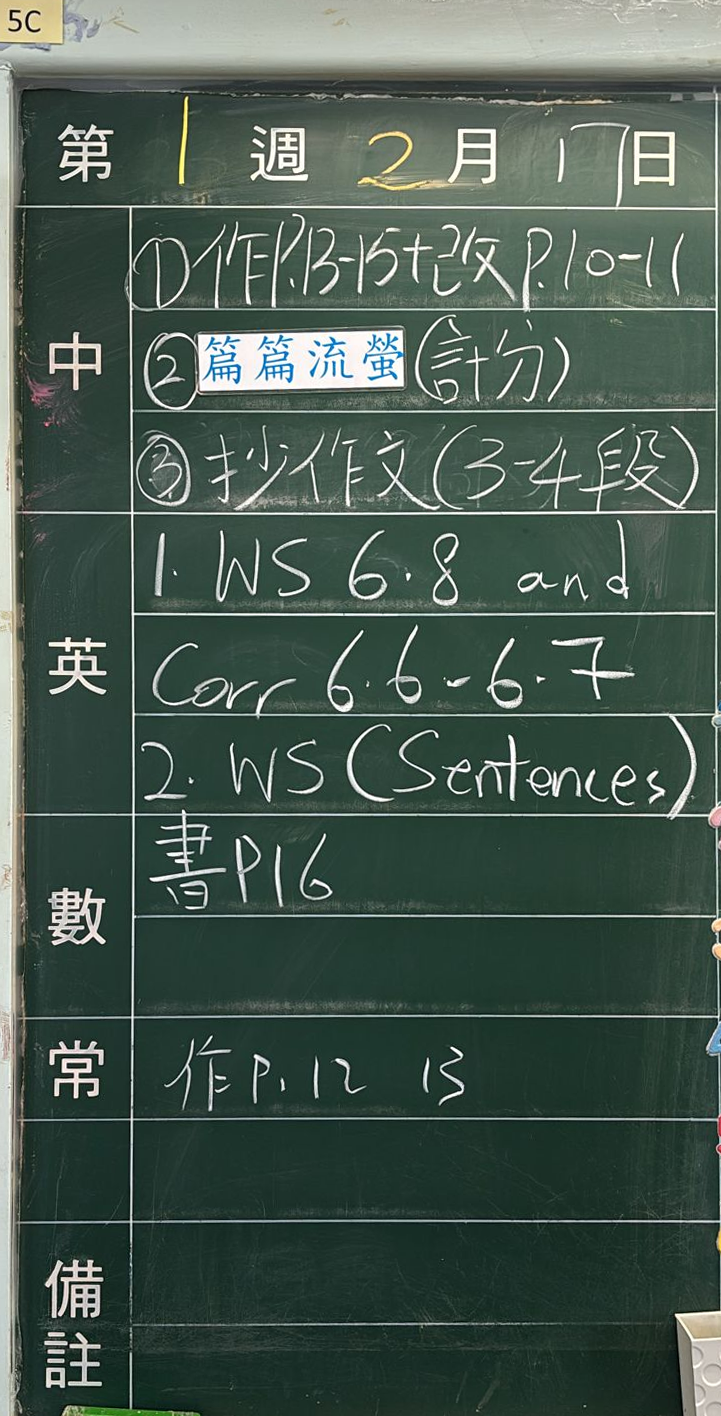 5C
第 1 週 2 月 17 日
中
①作P.13-15+改P.10-11
②篇篇流螢(計分)
③抄作文(3-4段)
英
1. WS 6.8 and
Corr 6.6-6.7
2. WS (Sentences)
數
書P16
常
作P.12 13
備註